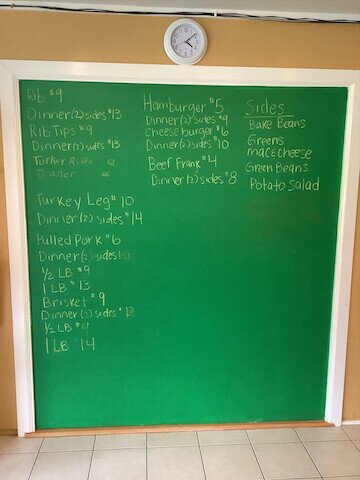 Rib $9
Dinner (2) sides $13
Rib Tips $9
Dinner (2) sides $13
Turkey Ribs 12
Dinner 16
Turkey Leg $10
Dinner (2) sides $14
Pulled Pork $6
Dinner (2) sides
1/2 LB $9
1 LB $13
Brisket $9
Dinner (2) sides $13
1/2 LB $9
1 LB $14
Hamburger $5
Dinner (2) sides $9
cheese burger $6
Dinner (2) sides $10
Beef Frank $4
Dinner (2) sides $8
Sides
Bake Beans
Greens
mac & cheese
Green Beans
Potato Salad